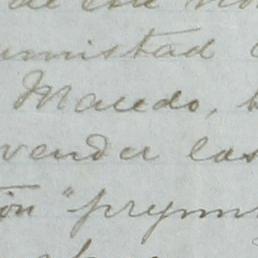 de este
amistad
Macedo,
vender las
ión "prymn